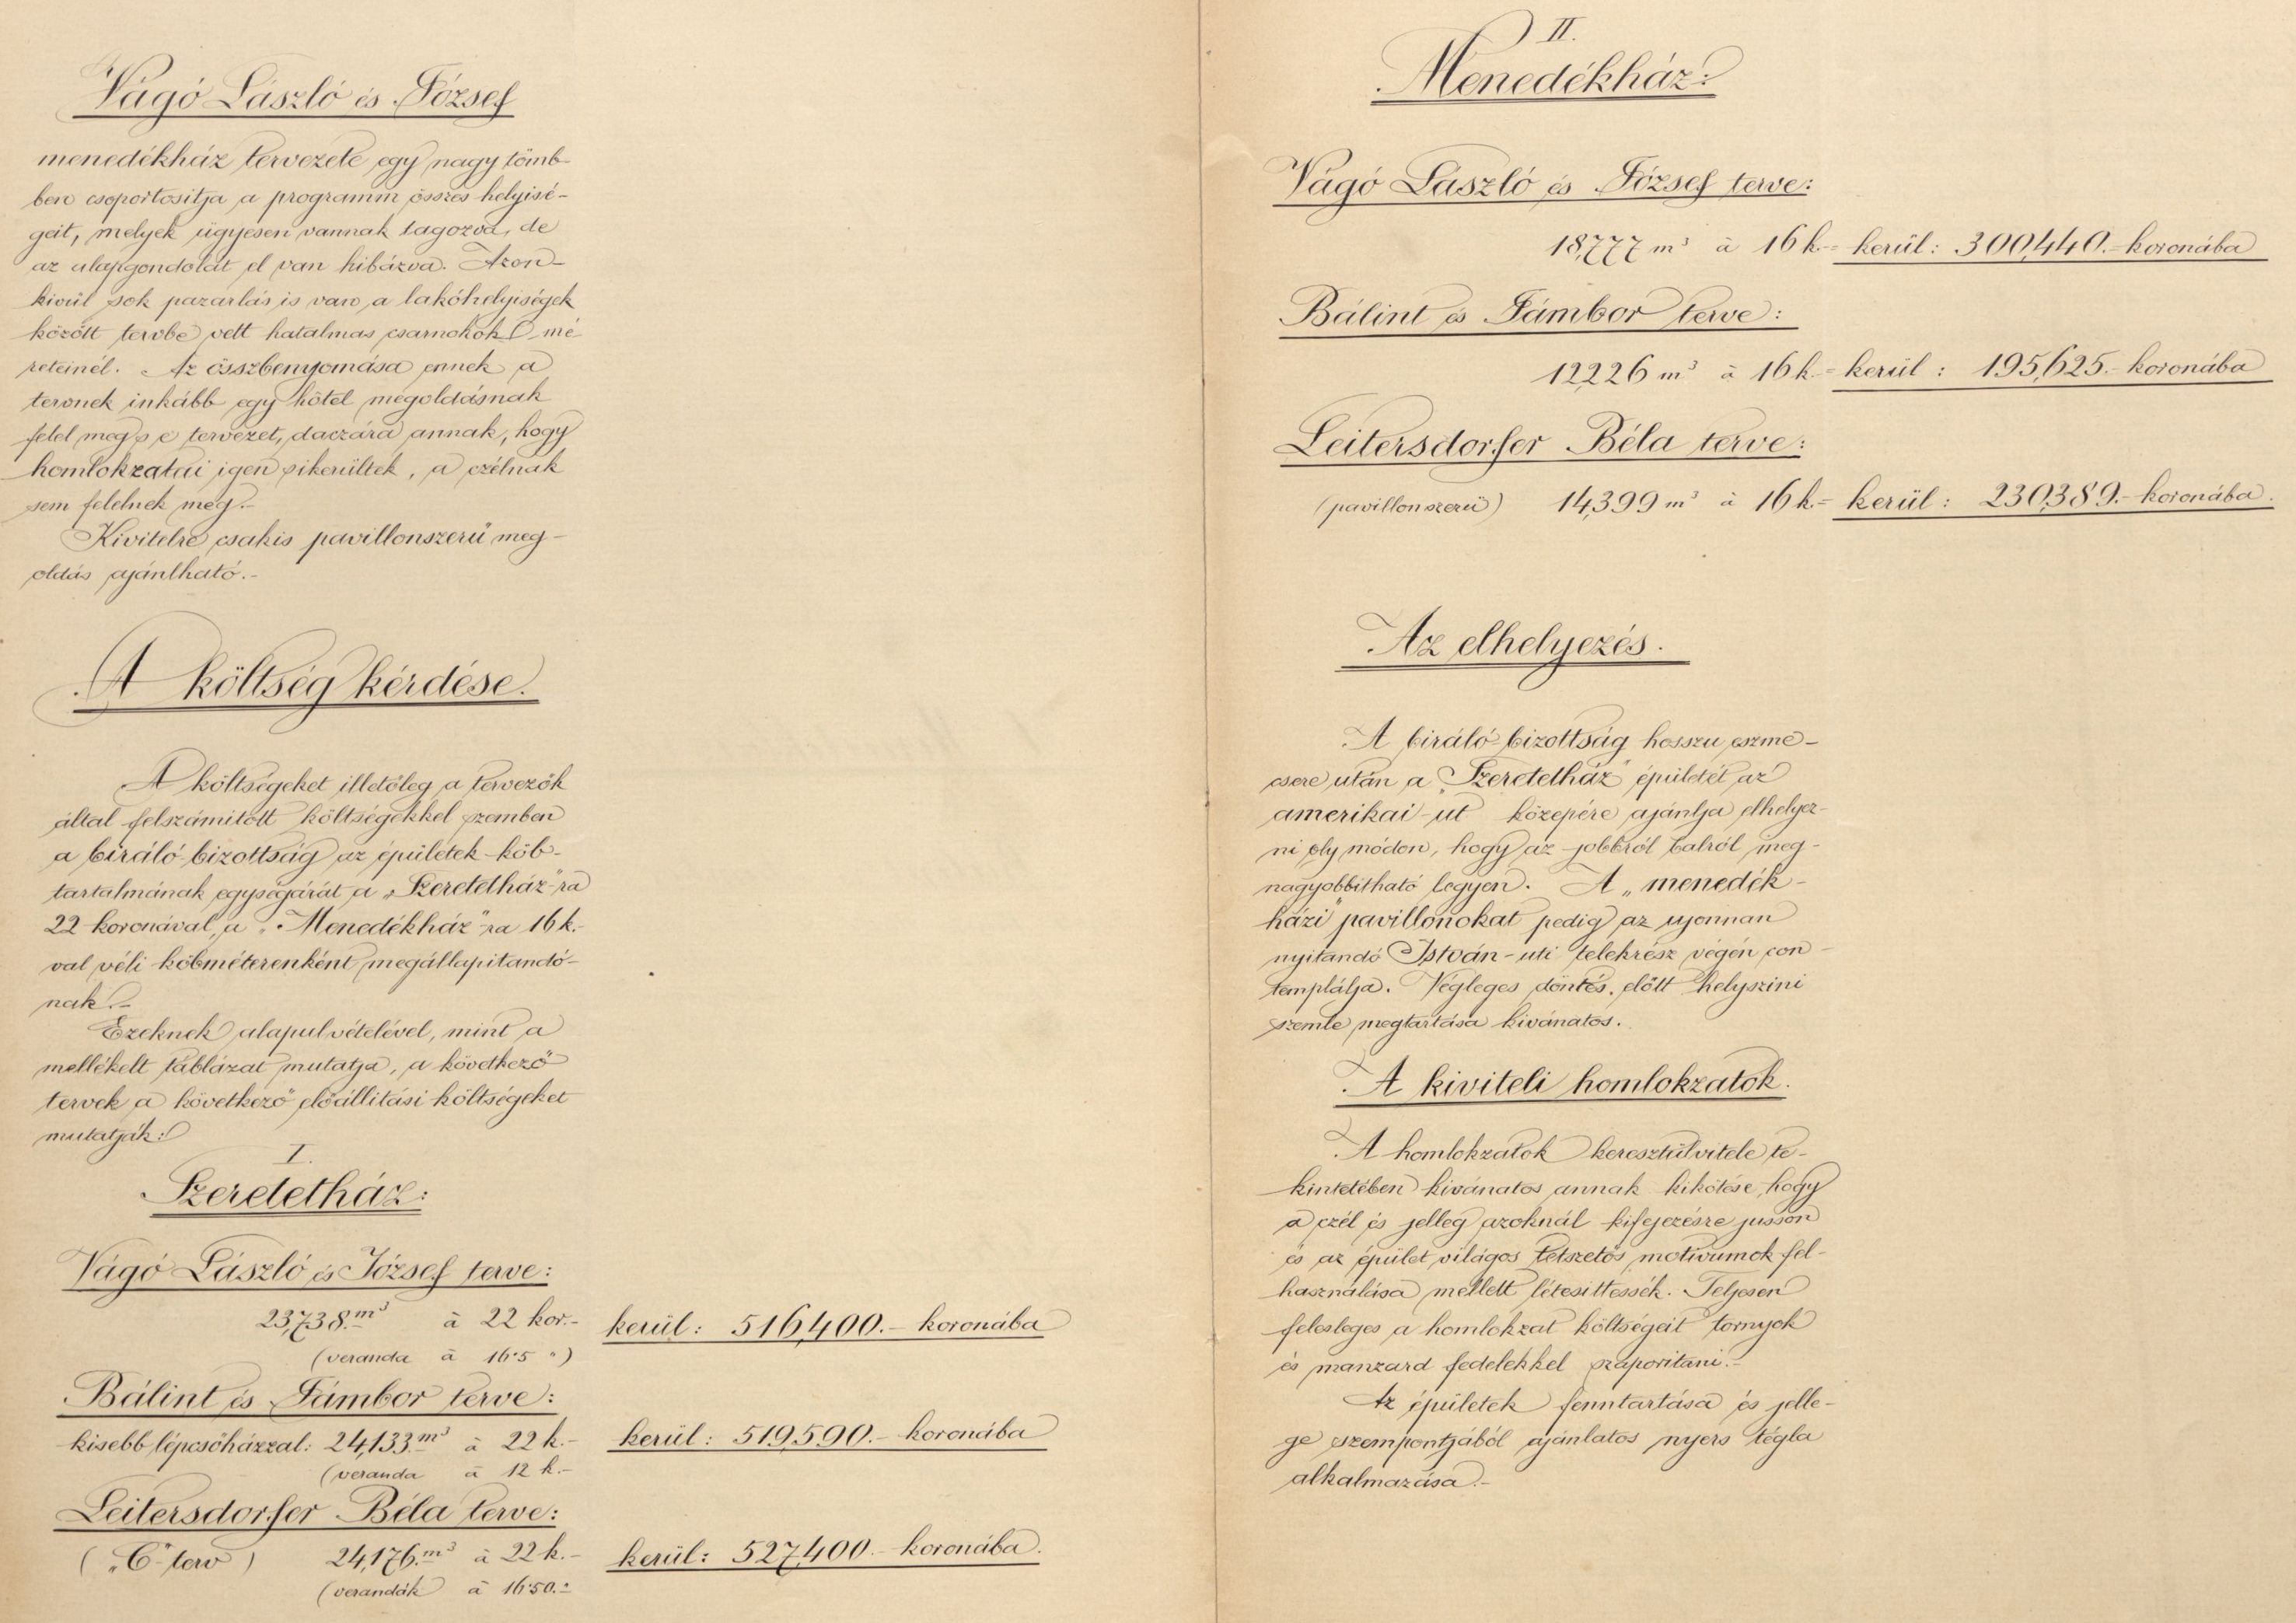 Vágó László és József
menedékház tervezete egy nagy tömb-
ben csoportositja a programm összes helyisé-
geit, melyek ügyesen vannak tagozva, de
az alapgondolat el van hibázva. Azon-
kivül sok pazarlás is van a lakóhelyiségek
között tervbe vett hatalmas csarnokok mé-
reteinél. Az összbenyomása ennek a
tervnek inkább egy hôtel megoldásnak
felel meg s e tervezet, daczára annak, hogy
homlokzatai igen sikerültek, a czélnak
sem felelnek meg.-
Kivitelre csakis pavillonszerü meg-
oldás ajánlható.-
A költség kérdése.
A költségeket illetőleg a tervezők
által felszámitott költségekkel szemben
a biráló-bizottság az épületek köb-
tartalmának egységárát a „Szeretetház"-ra
22 koronával, a „Menedékház"-ra 16 k.-
val véli köbméterenként megállapitandó-
nak.-
Ezeknek alapulvételével, mint a
mellékelt táblázat mutatja, a következő
tervek a következő előállitási költségeket
mutatják:
I.
Szeretetház:
Vágó László és József terve:
23,738.m³ à 22 kor.- kerül: 516,400.- koronába
(veranda à 16·5 ")
Bálint és Jámbor terve:
kisebb lépcsőházzal: 24,133.m³ à 22 k.- kerül: 519,590.- koronába
(veranda à 12 k.-
Leitersdorfer Béla terve:
(„C"-terv) 24,176.m³ à 22 k.- kerül: 527,400.- koronába.
(verandák à 16·50.-
II.
Menedékház:
Vágó László és József terve:
18,777 m³ à 16 k.- kerül: 300,440.- koronába
Bálint és Jámbor terve:
12,226 m³ à 16 k.- kerül: 195,625.- koronába
Leitersdorfer Béla terve:
(pavillonszerü) 14,399 m³ à 16 k.- kerül: 230,389.- koronába.
Az elhelyezés.
A biráló-bizottság hosszu eszme-
csere után a „Szeretetház" épületét az
amerikai-ut közepére ajánlja elhelyez-
ni oly módon, hogy az jobbról balról meg-
nagyobbitható legyen. A „menedék-
házi" pavillonokat pedig az ujonnan
nyitandó István-uti telekrész végén con-
templálja. Végleges döntés előtt helyszini
szemle megtartása kivánatos.
A kiviteli homlokzatok.
A homlokzatok keresztülvitele te-
kintetében kivánatos annak kikötése, hogy
a czél és jelleg azoknál kifejezésre jusson
és az épület világos tetszetős motivumok fel-
használása mellett létesittessék. Teljesen
felesleges a homlokzat költségeit tornyok
és manzard fedelekkel szaporitani.-
Az épületek fenntartása és jelle-
ge szempontjából ajánlatos nyers tégla
alkalmazása.-